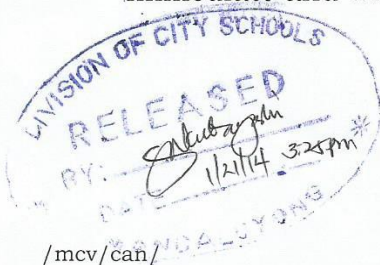 DIVISION OF CITY SCHOOLS
RELEASED
BY:
1/21/14 3:25pm
DATE
MANDALUYONG
/mcv/can/